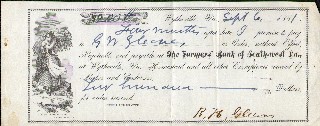 Wytheville, Va. Sept 6, 1881.
Four months after date I promise to pay
G W Gleaves or Order, without offset,
Negotiable and payable at The Farmers' Bank of Southwest Va.
at Wytheville, Va. Homestead and all other Exemptions waived by
Maker and Endorser.
Two hundred Dollars
for value received
R. H. Gleaves